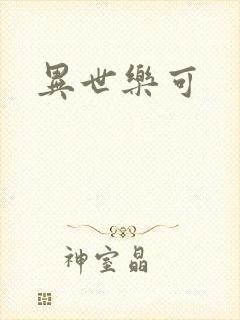 異世樂可
神室晶